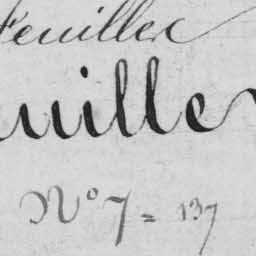 Feuillex
uille
N° 7 = 137